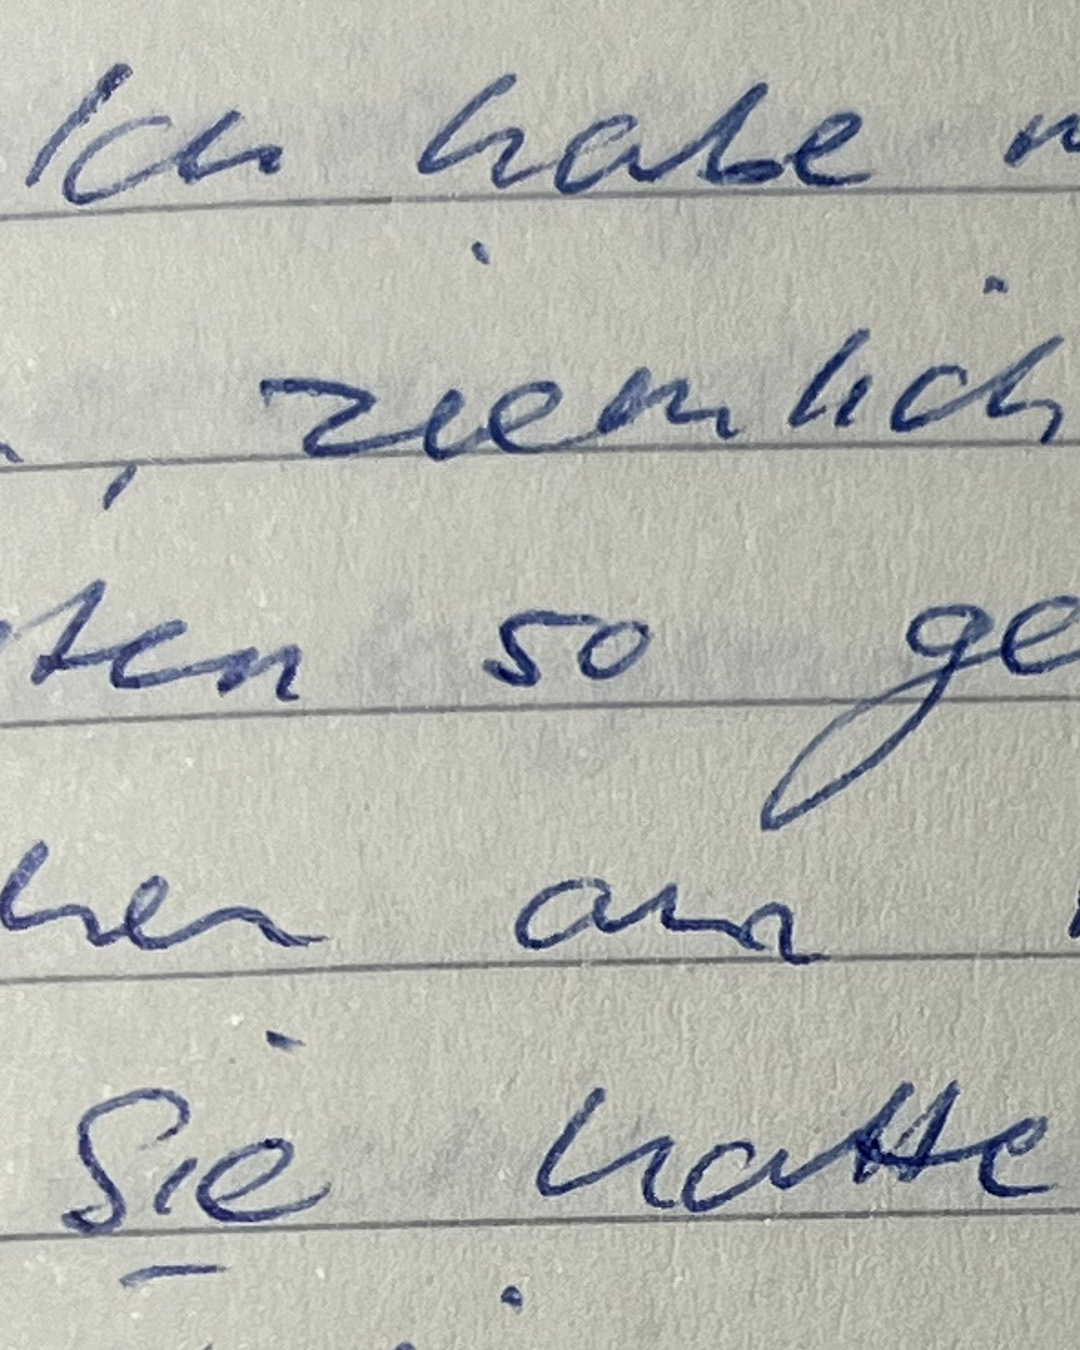 Ich habe
, ziemlich
sten so ge
hen am
Sie hatte